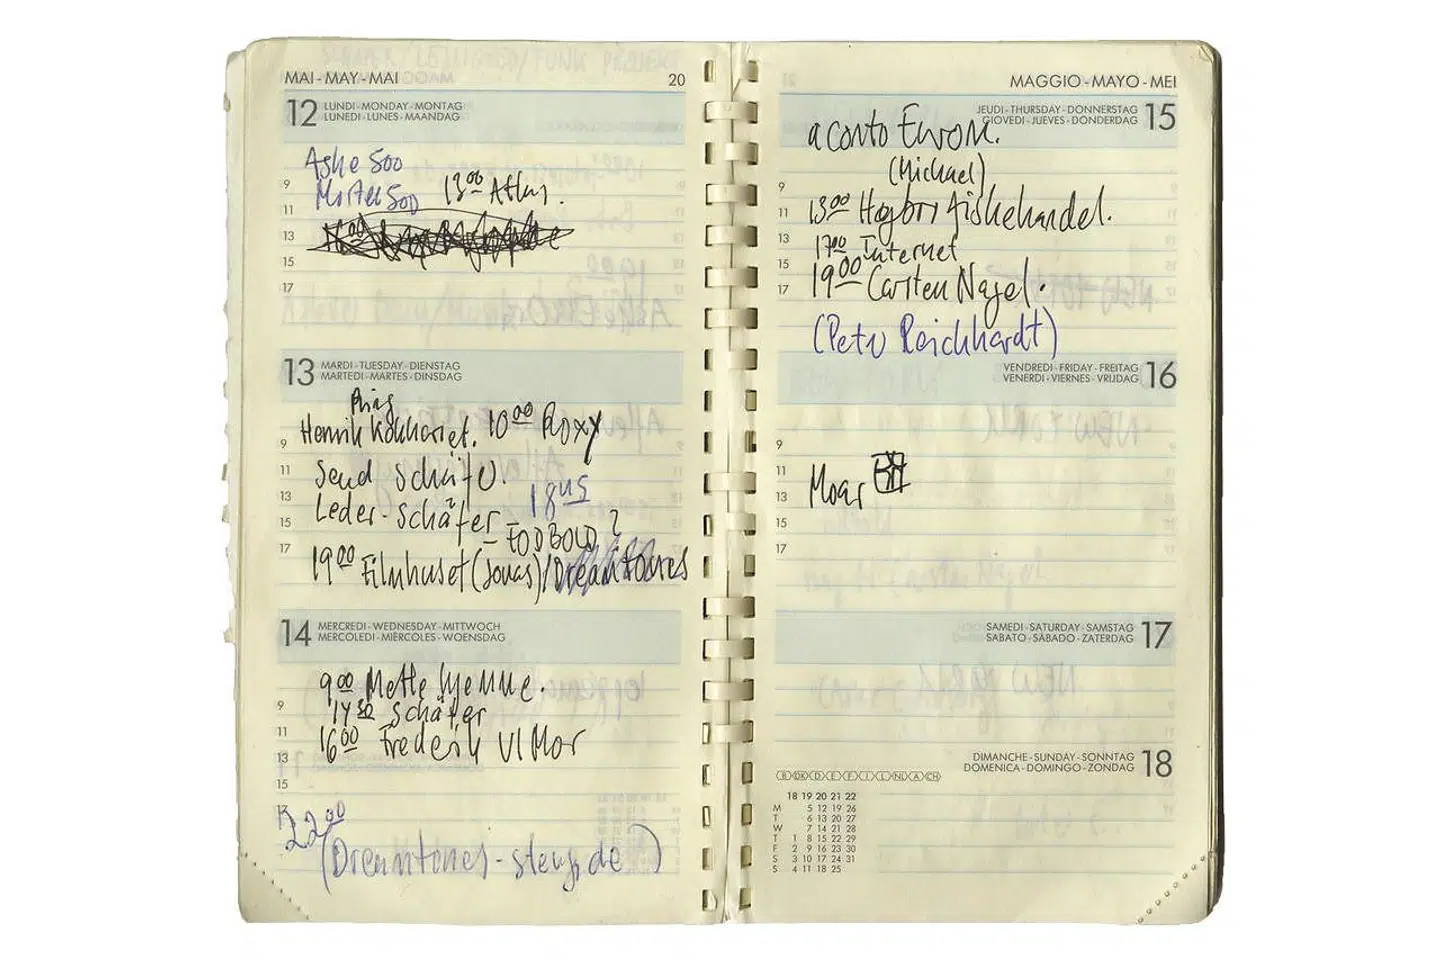 MAI - MAY - MAI 20
12 LUNDI - MONDAY - MONTAG
LUNEDI - LUNES - MAANDAG
Aske 500
9
Morten 500 13 00 Atlas.
11
13
16 00
15
17
13 MARDI - TUESDAY - DIENSTAG
MARTEDI - MARTES - DINSDAG
Ring
9
Henrik 10 00 Roxy
11
Send Schäfer.
13
Leder - Schäfer 18 45
15
- FODBOLD?
17
19 00 Filmhuset (Jonas) / Dreamtones
14 MERCREDI - WEDNESDAY - MITTWOCH
MERCOLEDI - MIÉRCOLES - WOENSDAG
9 00 Mette
9
14 30 Schäfer
11
16 00 Frederik
13
15
22 00
(Dreamtones -
MAGGIO - MAYO - MEI
JEUDI - THURSDAY - DONNERSTAG 15
GIOVEDI - JUEVES - DONDERDAG
a conto
(Michael)
9
11
13 00 fiskehandel.
13
17 00 Internet
15
19 00 Carsten Nagel.
17
(Peter Reichhardt)
VENDREDI - FRIDAY - FREITAG 16
VENERDI - VIERNES - VRIJDAG
9
11
13
15
17
SAMEDI - SATURDAY - SAMSTAG 17
SABATO - SÁBADO - ZATERDAG
DIMANCHE - SUNDAY - SONNTAG 18
DOMENICA - DOMINGO - ZONDAG
18 19 20 21 22
M 5 12 19 26
T 6 13 20 27
W 7 14 21 28
T 1 8 15 22 29
F 2 9 16 23 30
S 3 10 17 24 31
S 4 11 18 25